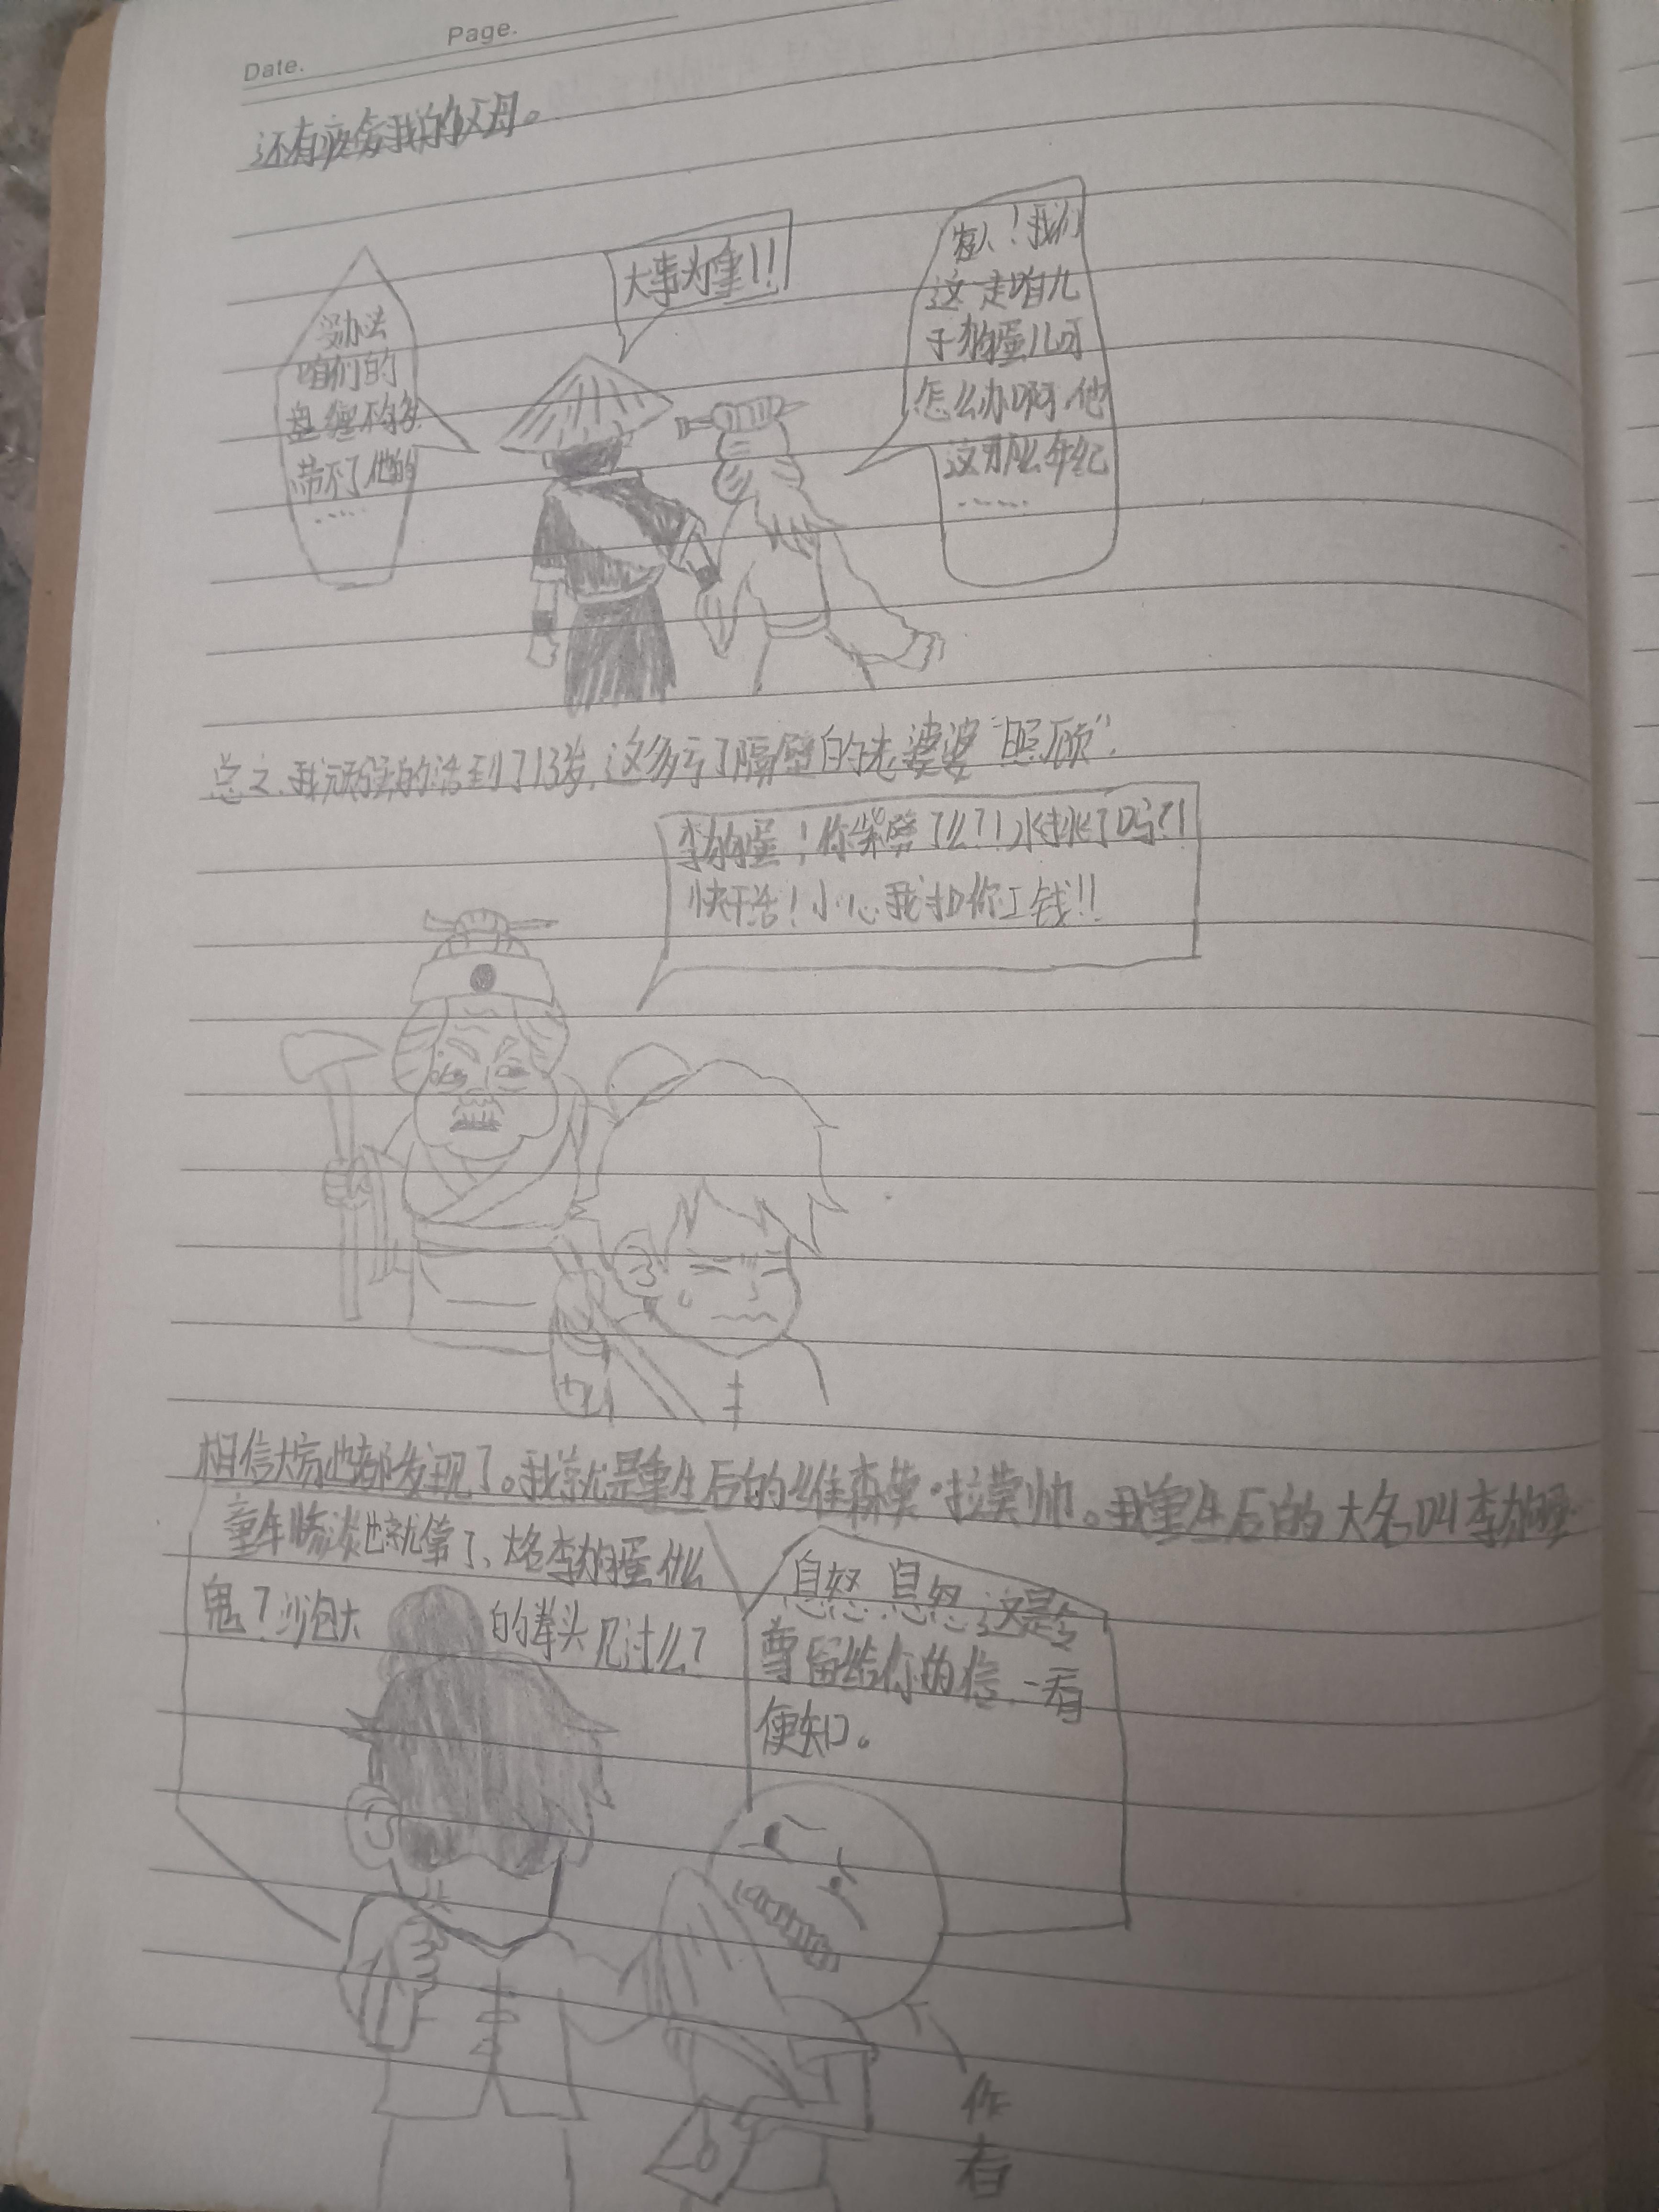 Date.
Page.
还有疼爱我的父母。
大事为重!!
官人!我们
这一走咱儿
子狗蛋儿可
怎么办啊,他
这那么年纪
……
没办法
咱们的
盘缠不够多
带不了他的
……
总之,我顽强的活到了13岁,这多亏了隔壁的老婆婆“照顾”.
李狗蛋!你柴劈了么?!水挑水了吗?!
快干活!小心我扣你工钱!!
相信大家也都发现了。我就是重生后的维森莫·拉莫帅。我重生后的大名叫李狗蛋
童年惨淡也就算了、大名李狗蛋什么
鬼?沙包大的拳头见过么?
息怒息怒,这是令
尊留给你的信,一看
便知。
作
者